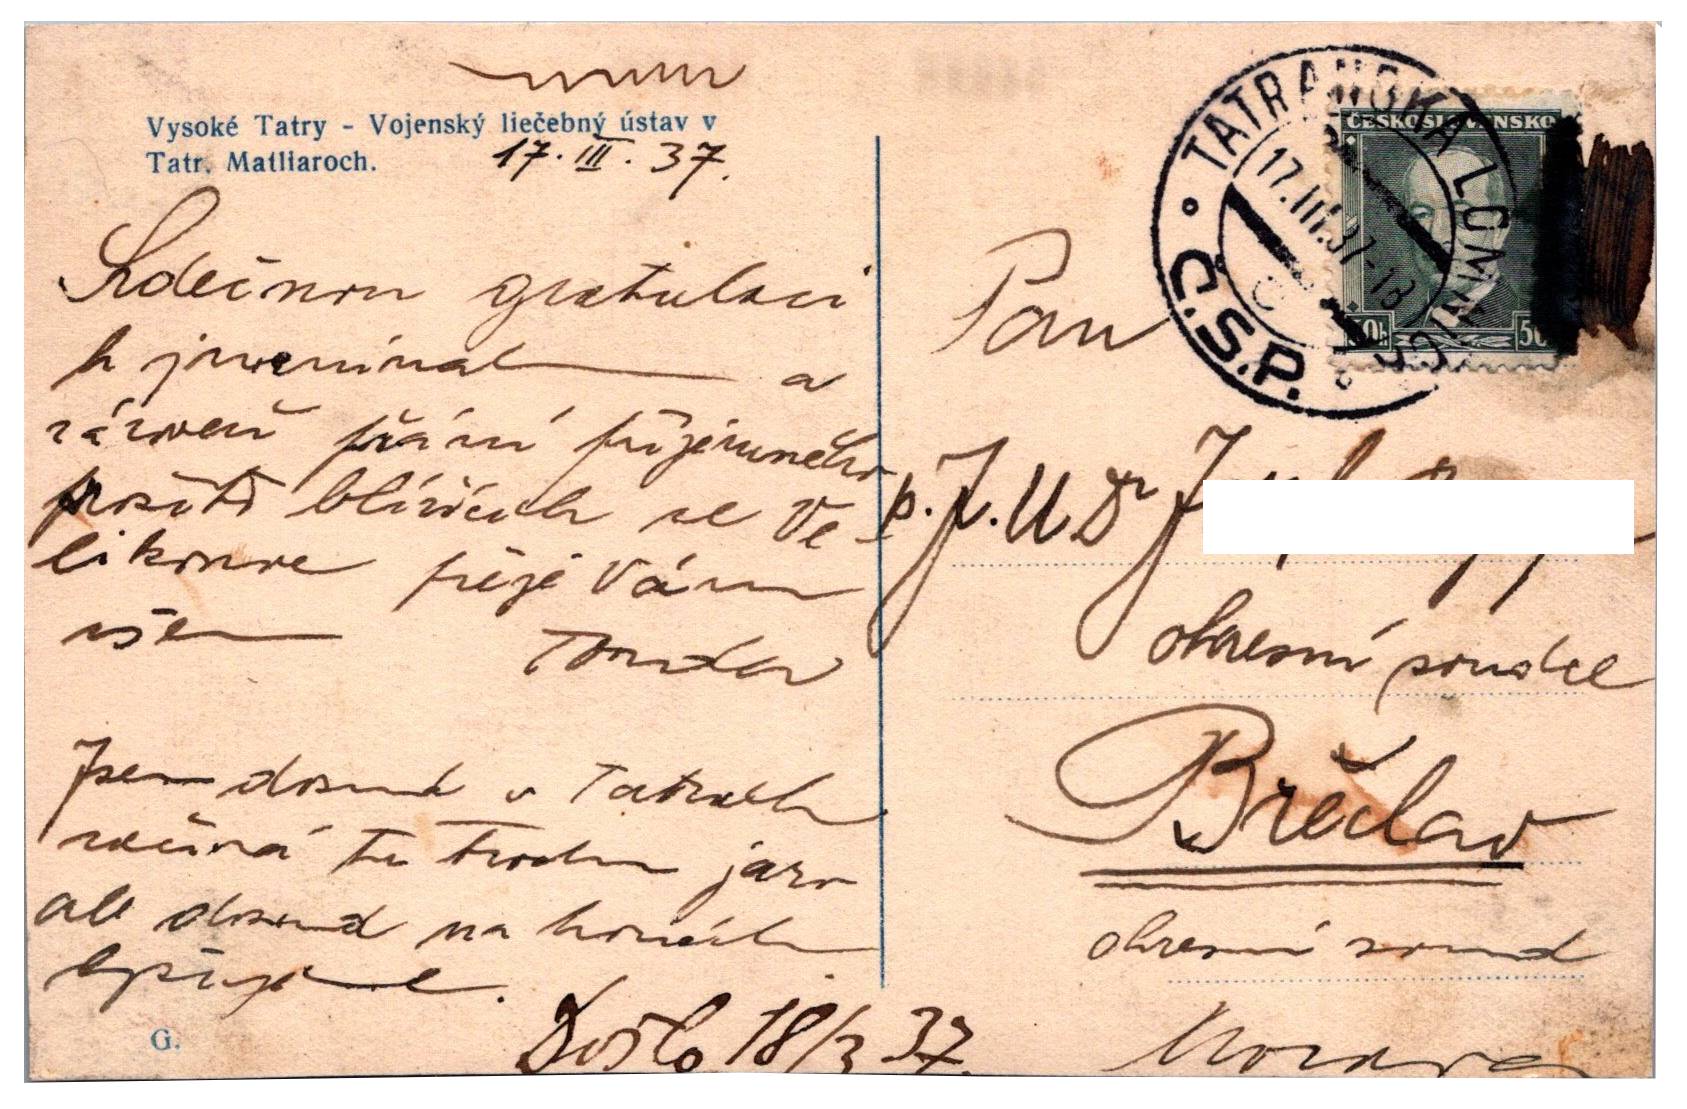 Vysoké Tatry - Vojenský liečebný ústav v
Tatr. Matliaroch.
17. III. 37.
Srdečnou gratulaci
k jmeninám a
zároveň přání příjemného
prožití blížících se Ve-
likonoc přeje Vám
všem Tonda
Jsem dosud v Tatrách
začíná tu trochu jaro
ale dosud na horách
lyžujeme.
G.
Došlo 18/3 37.
TATRANSKÁ LOMNICA
17.III.37-18
Č.S.P.
ČESKOSLOVENSKO
50h 50h
Pan
p. J.U.Dr J
okresní soudce
Břeclav
okresní soud
Morava